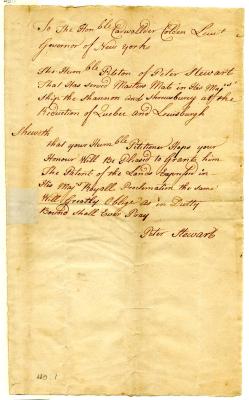 To The Hon.ble Cadwalder Colden Lieut
Governor of New York
The Humble Petition of Peter Stewart
That Has Served Masters Mate in His Majests
Ship the Shannon and Shrewsbury at the
Reduction of Quebec and Louisburgh
Sheweth
that your Humble Petitioner Hops your
Honour Will Be Pleased to Grante him
The Patent of the Lands in
His Majs Royall Proclamation the same
Will Greatly Oblige as in Dutty
Bound Shall Ever Pray
Peter Stewart